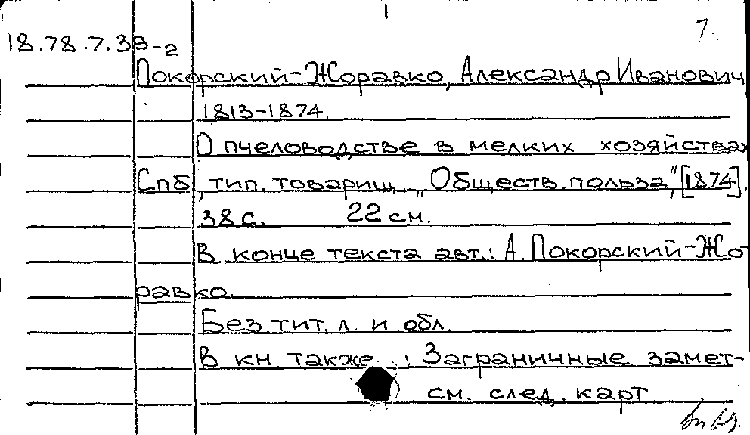 7.
18.78.7.38-2
Покорский-Жоравко, Александр Иванович
1813-1874.
О пчеловодстве в мелких хозяйствах
Спб, тип. товарищ. „Обществ. польза", [1874].
38 с. 22 см.
В конце текста авт.: А. Покорский-Жо-
равко.
Без тит. л. и обл.
В кн. также: Заграничные замет-
см. след. карт.